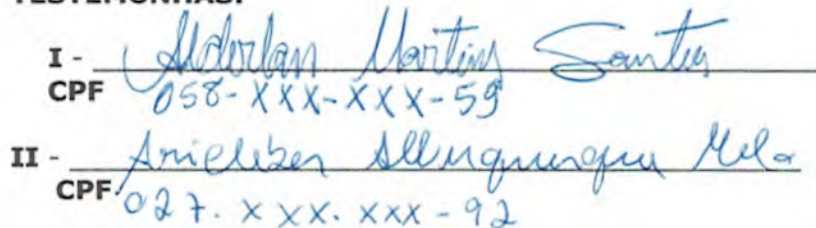 TESTEMUNHAS:
I - Alderlan Martins Santos
CPF 058-XXX-XXX-59
II - Albuquerque Melo
CPF. 027. XXX. XXX - 92